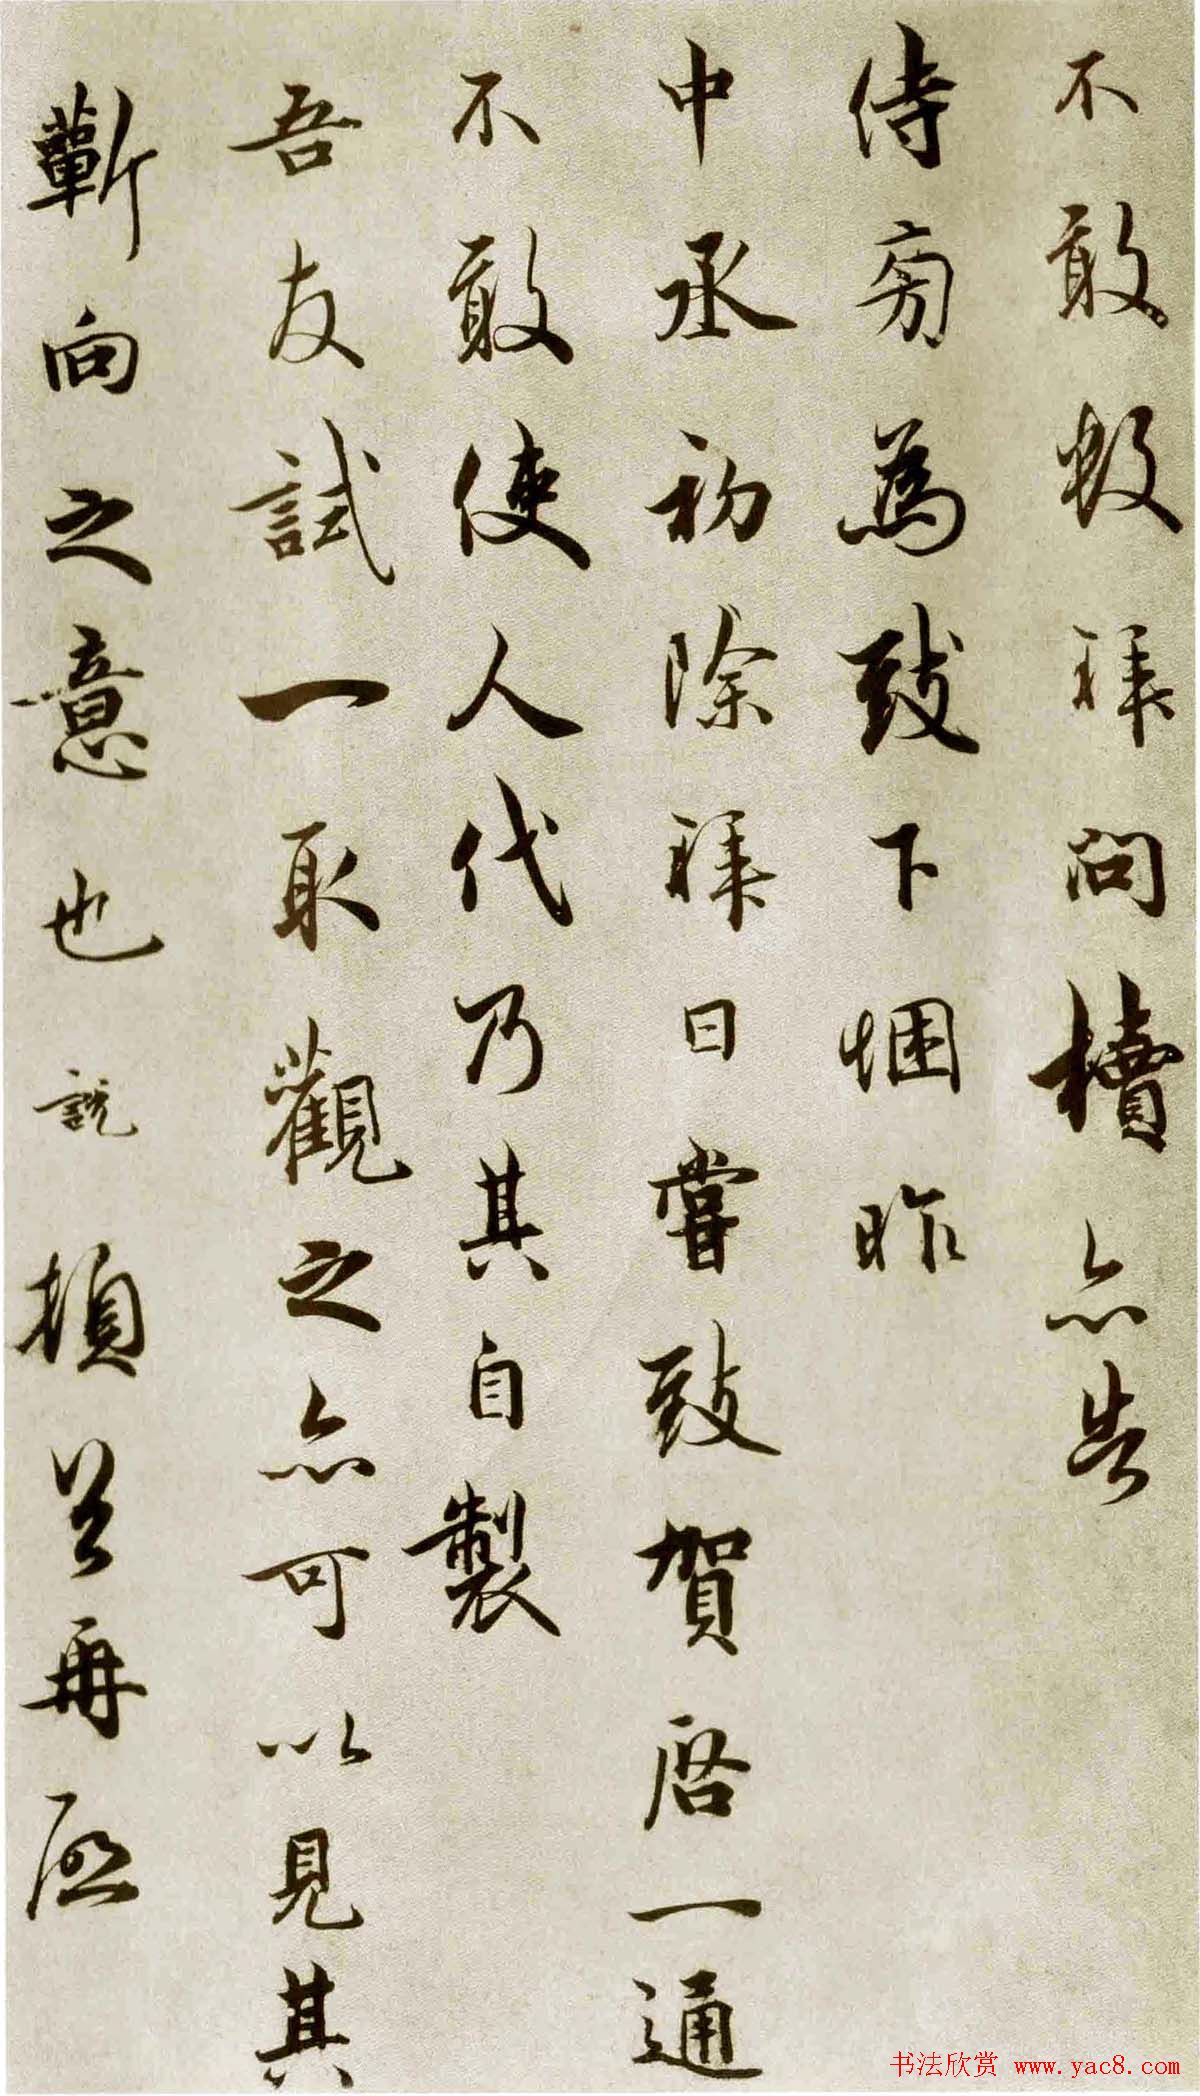 不敢數拜問犢亦告
侍旁為致下悃昨
中丞初除拜日嘗致賀啓一通
不敢使人代乃其自製
吾友試一取觀之亦可以見其
蘄向之意也説頓首再啟
书法欣赏 www.yac8.com